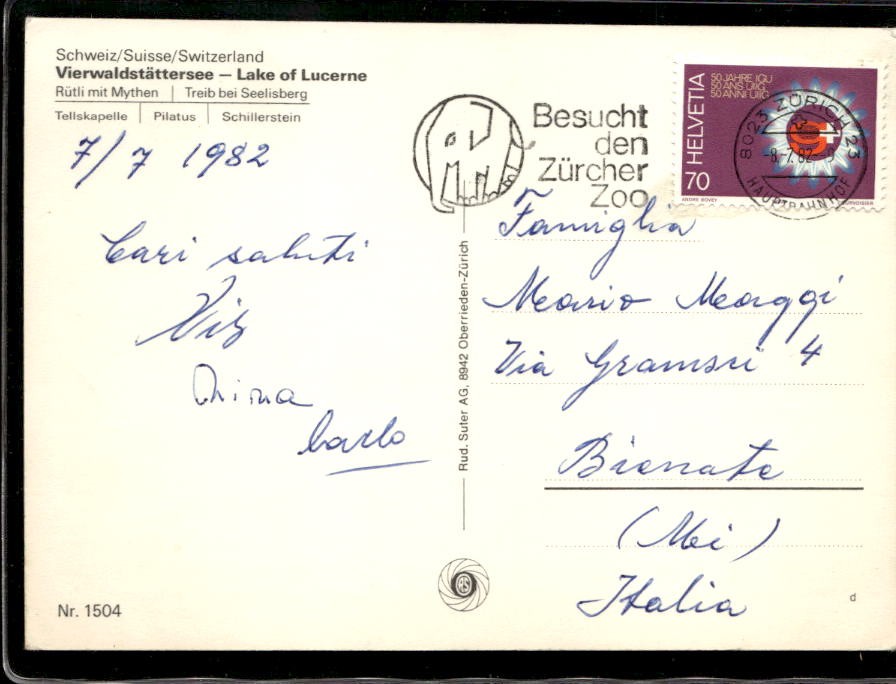 Schweiz/Suisse/Switzerland
Vierwaldstättersee – Lake of Lucerne
Rütli mit Mythen | Treib bei Seelisberg
Tellskapelle | Pilatus | Schillerstein
7/7 1982
Cari saluti
Carlo
Nr. 1504
Rud. Suter AG, 8942 Oberrieden-Zürich
Besucht
den
Zürcher
Zoo
HELVETIA
70
50 JAHRE IGU
50 ANS UIIG
50 ANNI UIIG
ANDRE BOVEY
COURVOISIER
8023 ZÜRICH 23
-8.-7.82--9
HAUPTBAHNHOF
Famiglia
Mario Maggi
Via Gramsci 4
Bienate
(Mi)
Italia
d